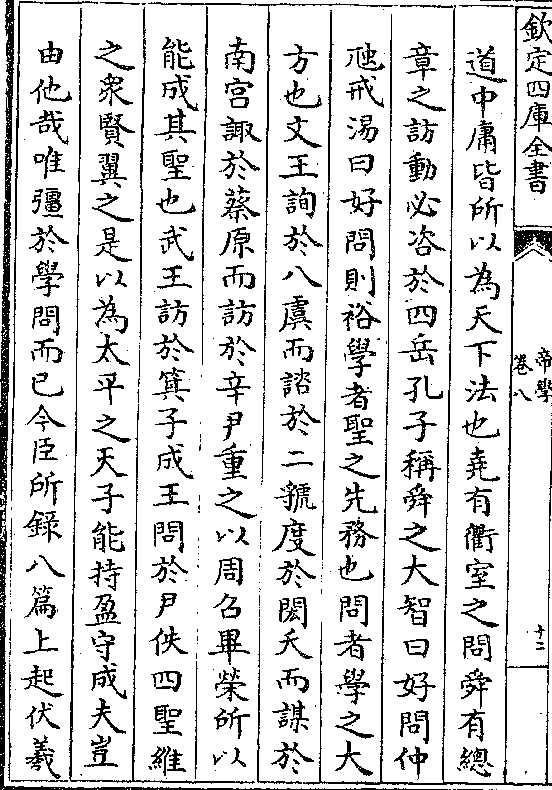 道中庸皆所以為天下法也堯有衢室之問舜有總
章之訪動必咨於四岳孔子稱舜之大智曰好問仲
虺戒湯曰好問則裕學者聖之先務也問者學之大
方也文王詢於八虞而諮於二虢度於閎夭而謀於
南宫諏於蔡原而訪於辛尹重之以周召畢榮所以
能成其聖也武王訪於箕子成王問於尹佚四聖維
之衆賢翼之是以為太平之天子能持盈守成夫豈
由他哉唯彊於學問而已今臣所錄八篇上起伏羲
欽定四庫全書
帝學
卷八
十二